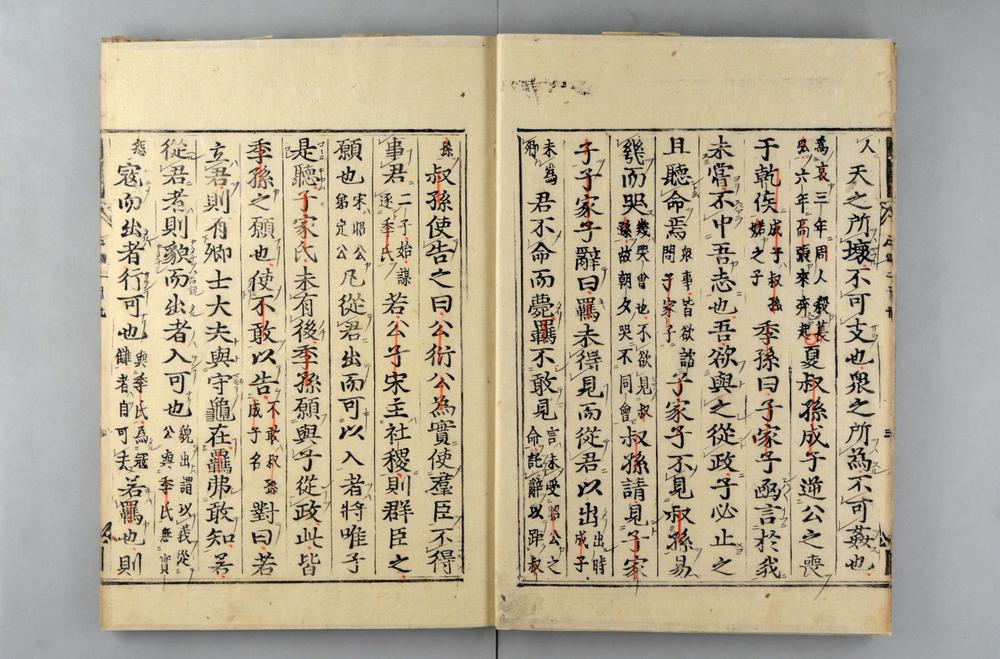 人天之所壞不可支也衆之所為不可奸也
為哀三年周人殺萇弘六年高張來奔起夏叔孫成子逆公之喪
于乾侯成子叔孫婼之子季孫曰子家子亟言於我
未嘗不中吾志也吾欲與之從政子必止之
且聽命焉衆事皆欲諮問子家子子家子不見叔孫易
幾而哭幾哭會也不欲見叔孫故朝夕哭不同會叔孫請見子家
子子家子辭曰羈未得見而從君以出出時成子
未為卿君不命而薨羈不敢見言未受昭公之命託辭以距叔
孫叔孫使告之曰公衍公為實使羣臣不得
事君二子始謀逐季氏若公子宋主社稷則群臣之
願也宋昭公弟定公凡從君出而可以入者將唯子
是聽子家氏未有後季孫願與子從政此皆
季孫之願也使不敢以告不敢叔孫成子名對曰若
立君則有卿士大夫與守龜在羈弗敢知若
從君者則貌而出者入可也貌出謂以義從公與季氏無實
怨寇而出者行可也與季氏為寇讎者自可去若羈也則